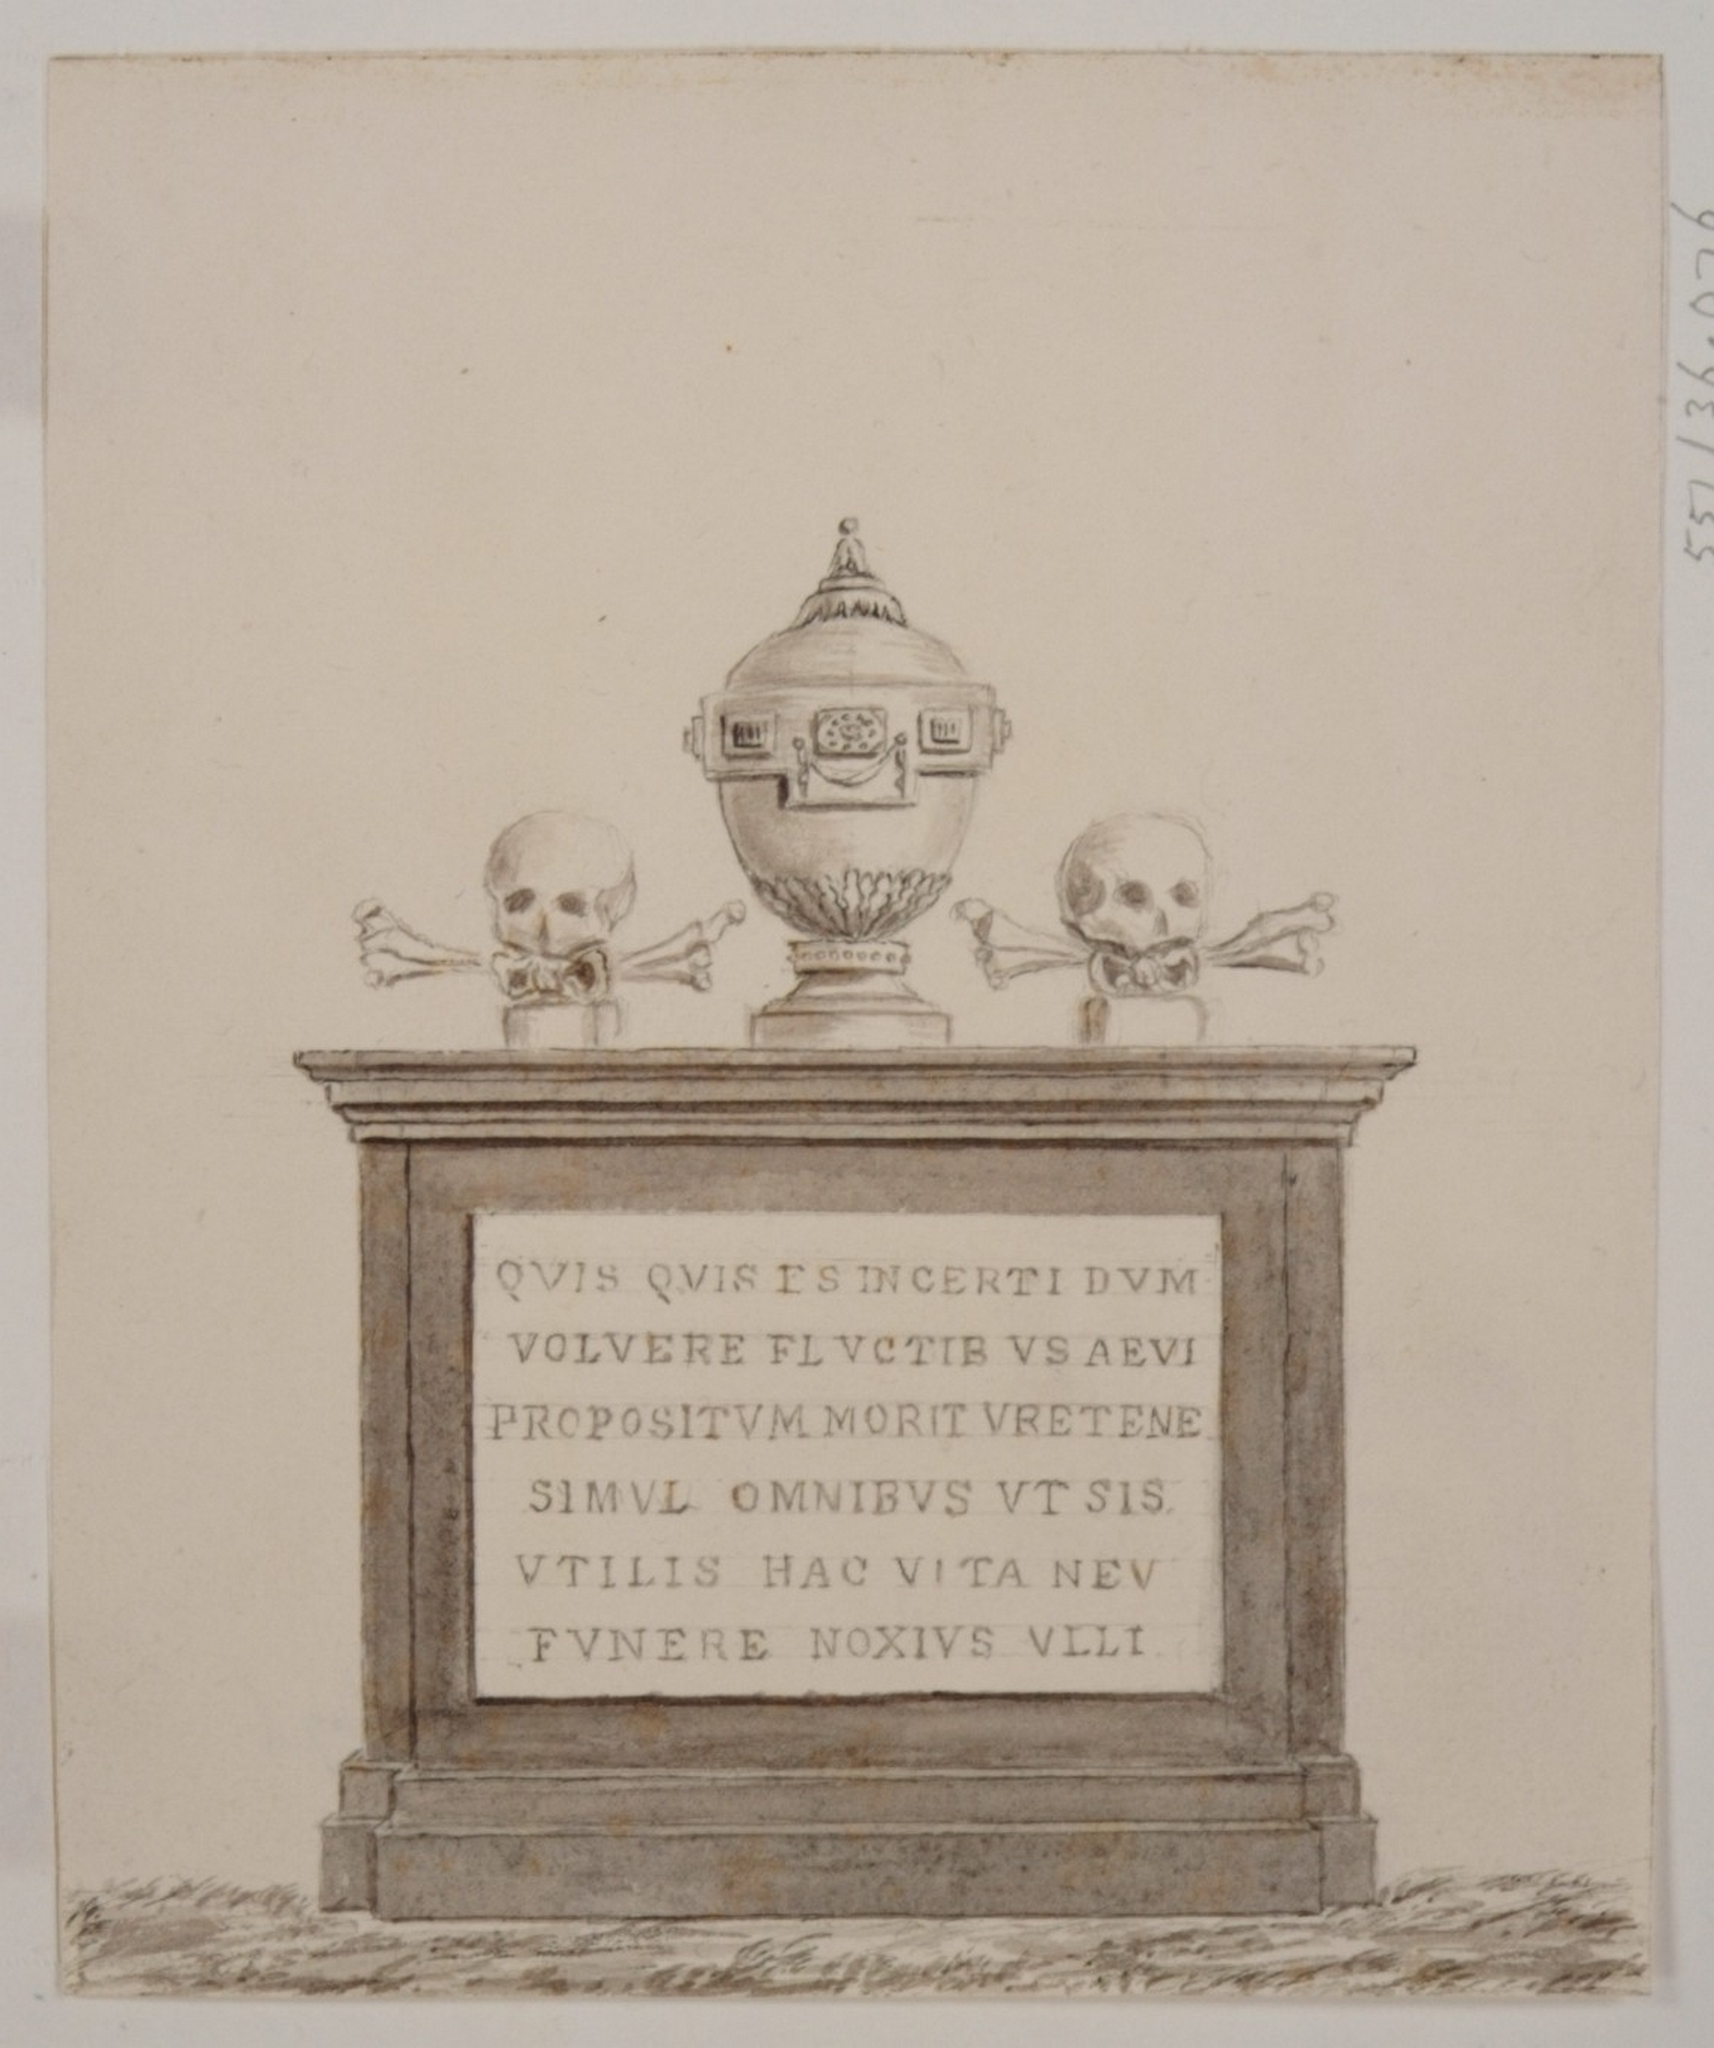 QVIS QVIS ES INCERTI DVM
VOLVERE FLVCTIB VS AEVI
PROPOSITVM MORIT VRETENE
SIMVL OMNIBVS VT SIS
VTILIS HAC VITA NEV
FVNERE NOXIVS VLLI
551/36.076